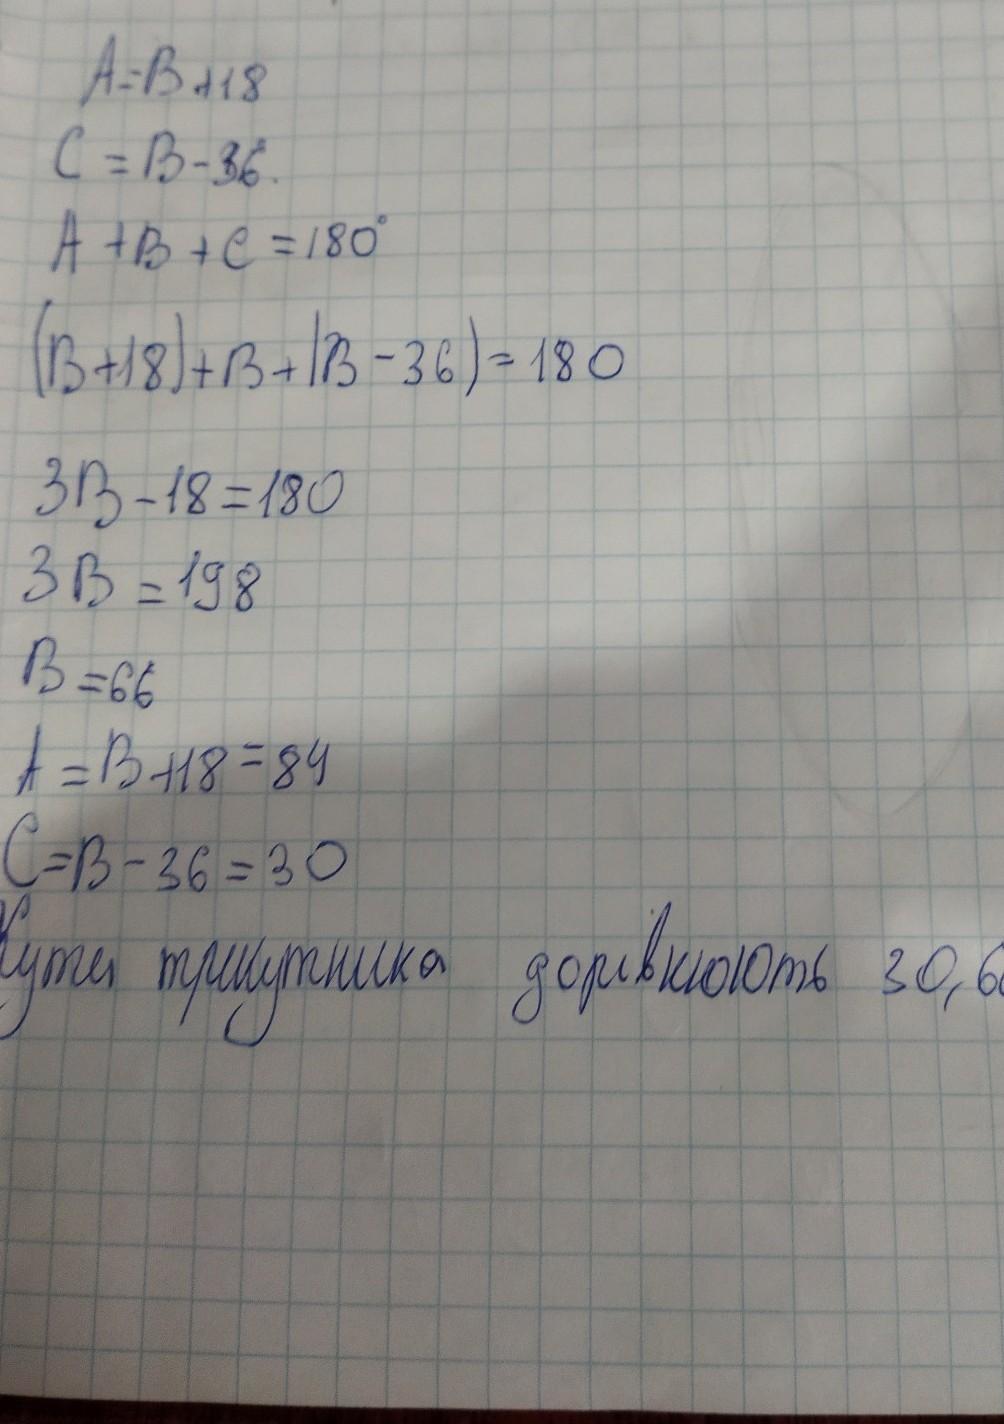 A=B+18
C=B-36.
A+B+C=180°
(B+18)+B+(B-36)=180
3B-18=180
3B=198
B=66
A=B+18=84
C=B-36=30
Кути трикутника дорівнюють 30, 66